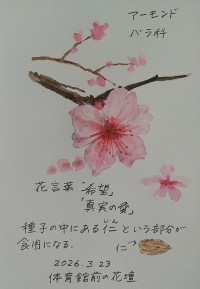 アーモンド
バラ科
花言葉「希望」
「真実の愛」
種子の中にある仁という部分が
じん
食用になる。
仁→
2026.3.23
体育館前の花壇